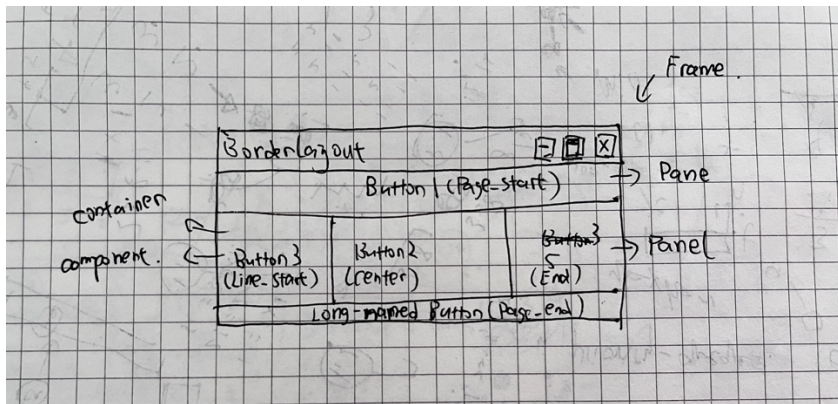 Frame.
BorderLayout
Button 1 (Page_start)
Pane
container
component.
Button 3
(Line_start)
Button 2
(center)
Button 3
5
(End)
Panel
Long-named Button (Page_end)